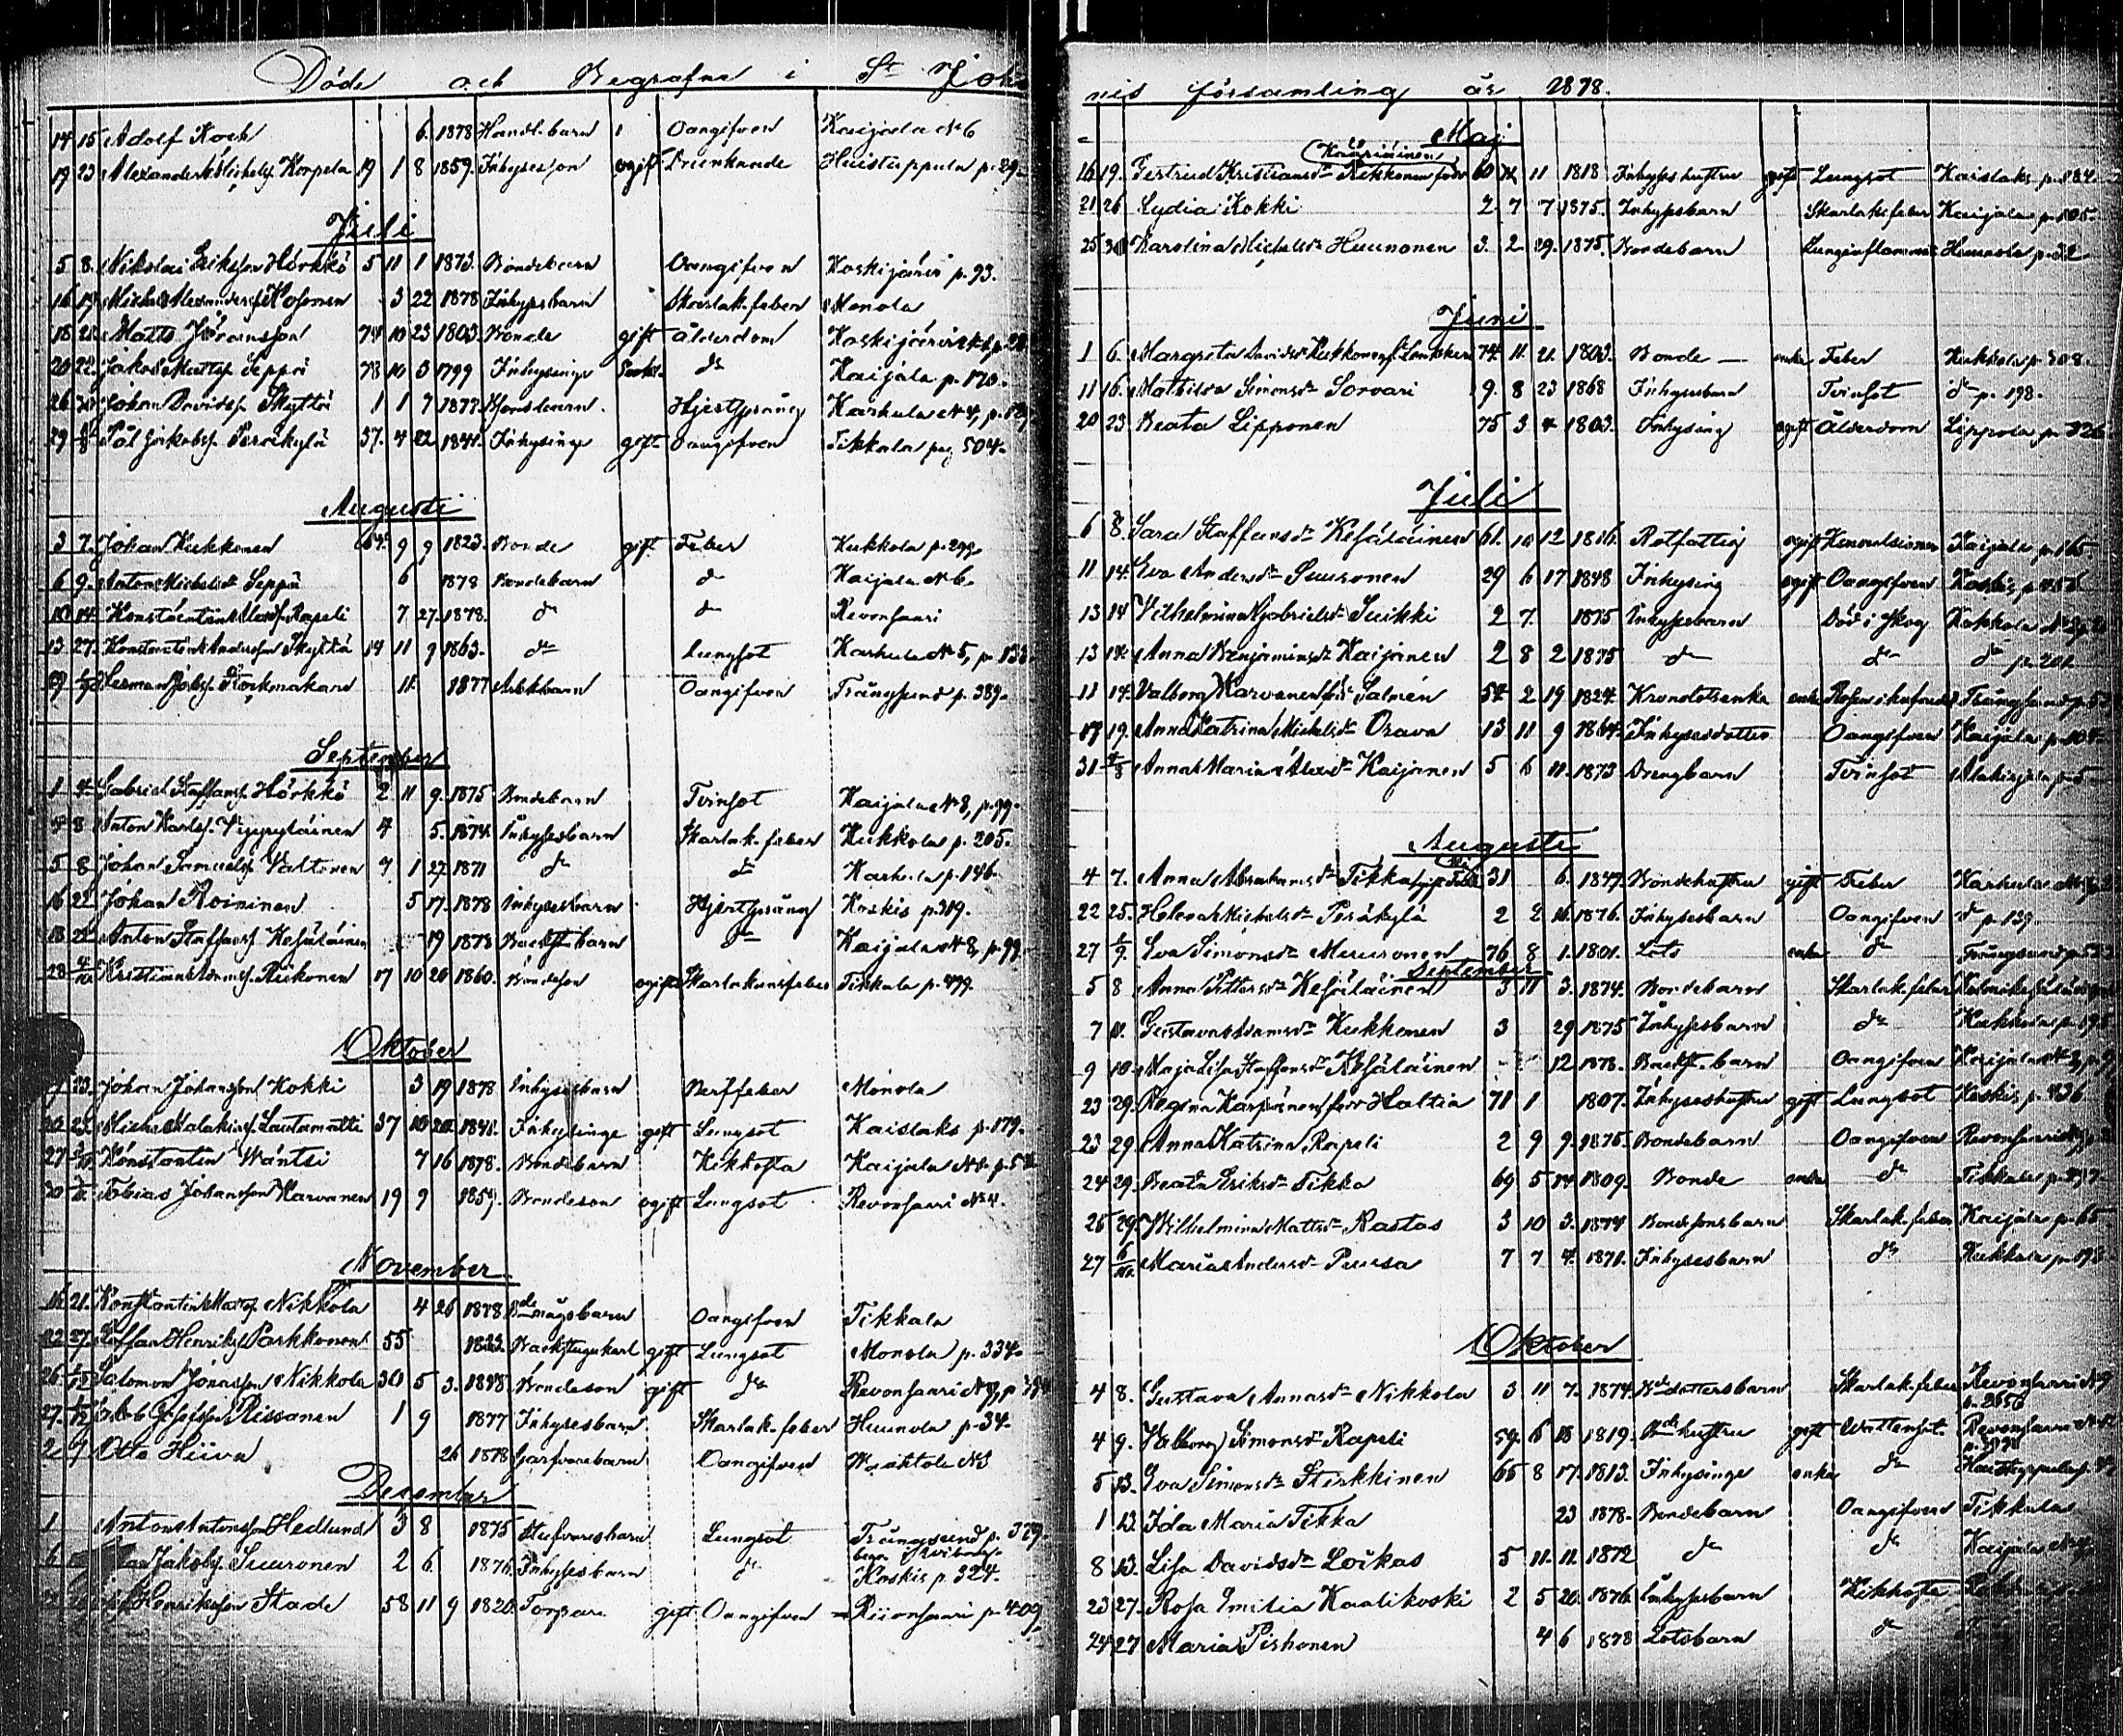 Döde och Begrafne i St Joha
14 15 Adolf Koch 6. 1878 Handl. barn Oangifven Kaijala No 6
19 23 Alexander Michelss. Korpela 19 1 8 1859. Inhyses son ogift Drunknade p. 29.
Juli
5 8. Nikolai Eriksson Hörkkö 5 11 1 1873. Bondebarn Oangifven Koskijärvi p. 93.
16 19 3 22 1878 Inhysesbarn Skarlak. feber Monola
18 21. Matts Jöransson 74 10 23 1803. Bonde gift ålderdom Koskijärvi
20 22. Jakob Mattss. Seppä 78 10 3 1799 Inhysinge do Kaijala p. 170.
26 Johan Davidss. Skyttä 1 1 7 1877 Karhula No 4,
29 Pål Jakobss. Peräkylä 37. 4 22 1841. Inhysinge gift Oangifven Tikkala pag 504.
Augusti
3 7. Johan Kukkonen 9 9 1823. Bonde gift Feber Kukkola p. 299.
6 9. Anton Seppä 6 1878 Bondebarn do Kaijala No 6.
10 14 Konstantin Rapeli 7 27. 1878. do do Revonsaari
13 27. Konstantin Andersson Skyttä 14 11 9 1863. do Lungsot Karhula No 5, p. 133
Herman 11. 1877 Oangifven Trångsund p. 389.
September
1 4. Gabriel Staffanss. Hörkkö 2 11 9. 1875 Bondebarn Tvinsot Kaijala No 8, p. 99.
4 8 Anton Karlss. 4 5. 1874. Inhysesbarn Skarlak. feber Kukkola p. 205.
5 8 Johan Samuelss. Valtonen 7 1 27 1871 do do Karhula p. 146.
16 22. Johan Roininen 5 17. 1878 Inhysesbarn Koskis p. 319.
18 22 Anton Staffanss. Kesäläinen 19 1878 do Kaijala No 8, p. 99.
28 4/10 Kristian Adamss. Kukonen 17 10 20 1860. Bondeson ogift Skarlakansfeber Tikkala p. 499.
Oktober
23. Johan Johansson Kokki 3 19 1878 Inhysesbarn Nerffeber Monola
20 23. Lautamatti 37 10 1841. Inhysinge gift Lungsot Kaislaks p. 179.
27 Konstantin Wäntsi 7 16 1878. Bondebarn Kikhosta Kaijala
30 Tobias Johansson Karvanen 19 9 1859. Bondeson ogift Lungsot Revonsaari No 4.
November
16 21. Konstantin Mattss. Nikkola 4 26 1878 Bde mågsbarn Oangifven Tikkala
22 27. Staffan Henrikss. Parkkonen 55 1823. Backstugukarl gift Lungsot Monola p. 334.
26 1/12 Salomon Jonasson Nikkola 30 5 3. 1848. Bondeson gift do Revonsaari
27. 1/12 Rissanen 1 9 1877 Inhysesbarn Skarlak. feber Huunola p. 34.
2 7 Otto Hiiva 26 1878 Garfvarebarn Oangifven No 3
December
1 Anton Antonsson Hedlund 3 8 1875 Lungsot Trångsund p. 379.
6 Jakobss. Suuronen 2 6. 1876. Inhysesbarn do Koskis p. 324.
Henriksson Stade 58 11 9 1820. Torpare gift Oangifven p. 409
nis församling år 1878.
Maj
Kauriainen
16 19. Gertrud Kristiansdr Rekkonen född 60 11 1818 Inhyseshustru gift Lungsot Kaislaks p. 184.
21 26 Lydia Kokki 2. 7 7 1875. Inhysesbarn Skarlak. feber Kaijala p. 105.
25 30 Karolina Michelsdr Huunonen 3. 2. 29. 1875. Bondebarn Lunginflamm. Huunola p. 32
Juni
1 6. Margreta Davidsdr Kukkonen 74. 11. 21. 1803. Bonde — enka Feber Kukkola p. 308.
11 16. Mathilda Simonsdr Sorvari 9. 8 23 1868 Inhysesbarn Tvinsot do p. 198.
20 23. Beata Lipponen 75 3 4. 1803. Inhysing ogift Ålderdom Lippola p. 326
Juli
6 8. Sara Staffansdr Kesäläinen 61. 10 12 1816. Rotfattig ogift Kaijala p. 165
11 14. Eva Andersdr Suuronen 29 6 17 1848 Inhysing ogift Oangifven Koskis
13 14 Vilhelmina Gabrielsdr Suikki 2 7. 1875 Inhysesbarn Död i skog Kukkola
13 14. Anna Benjaminsdr Kaijanen 2 8 2 1875 do do do p. 201
11 14. Valborg Karvanen född Salmén 54. 2 19 1824. enka Trångsund
17 19. Anna Katrina Michelsdr Orava 13 11 9 1864. Inhysesdotter Oangifven Kaijala p. 104.
31 4/8 Anna Maria Alexdr Kaijanen 5 6 11. 1873 Drengbarn Tvinsot
Augusti
4 7. Anna Abrahamsdr Tikka 31 6. 1847. Bondehustru gift Feber Karhula
22 25. Helena Michelsdr Peräkylä 2 2 16. 1876. Inhysesbarn Oangifven do p. 139.
27 1/9 Eva Simonsdr Muuronen 76 8 1. 1801. Lots enka do Trångsund
September
5 8 Anna Pettersdr Kesäläinen 3 11 3. 1874. Bondebarn Skarlak. feber
7 11. Gustava Adamsdr Kukkonen 3 29. 1875 Inhysesbarn do Kukkola p. 195
9 10. Maja Lisa Staffansdr Kesäläinen 12 1878. Backst. barn Oangifven Kaijala No 8, p.
23 29. Regina Karpanen född Haltia 71 1 1807. Inhyseshustru gift Lungsot Koskis p. 436
23 29. Anna Katrina Rapeli 2 9 9. 1875. Bondebarn Oangifven Revonsaari
24 29. Beata Eriksdr Tikka 69 5 14. 1809. Bonde enka do Tikkala
26 29. Wilhelmina Mattsdr Rastas 3 10 3. 1874 Bondesonsbarn Skarlak. feber Kaijala p. 65
27 6/10. Maria Andersdr Puusa 7 7 4. 1871. Inhysesbarn do Kukkola
Oktober
4 8. Gustava Annasdr Nikkola 3 11 7. 1874. Bde dottersbarn Skarlak. feber Revonsaari No 9
4 9. Valborg Simonsdr Rapeli 59. 6 18 1819. Bde hustru gift Wattensot. Revonsaari
5 13. Eva Simonsdr Stirkkinen 65 8 17. 1813. Inhysinge enka do
1 13. Ida Maria Tikka 23 1878. Bondebarn Oangifven Tikkala
8 13. Lisa Davidsdr Loikas 5 11. 11. 1872 do do Kaijala
23 27. Rosa Emilia Kaalikoski 2 5 20. 1876. Inhysesbarn Kikhosta
24 27 Maria Pishonen 4 6 1878 Lotsbarn do